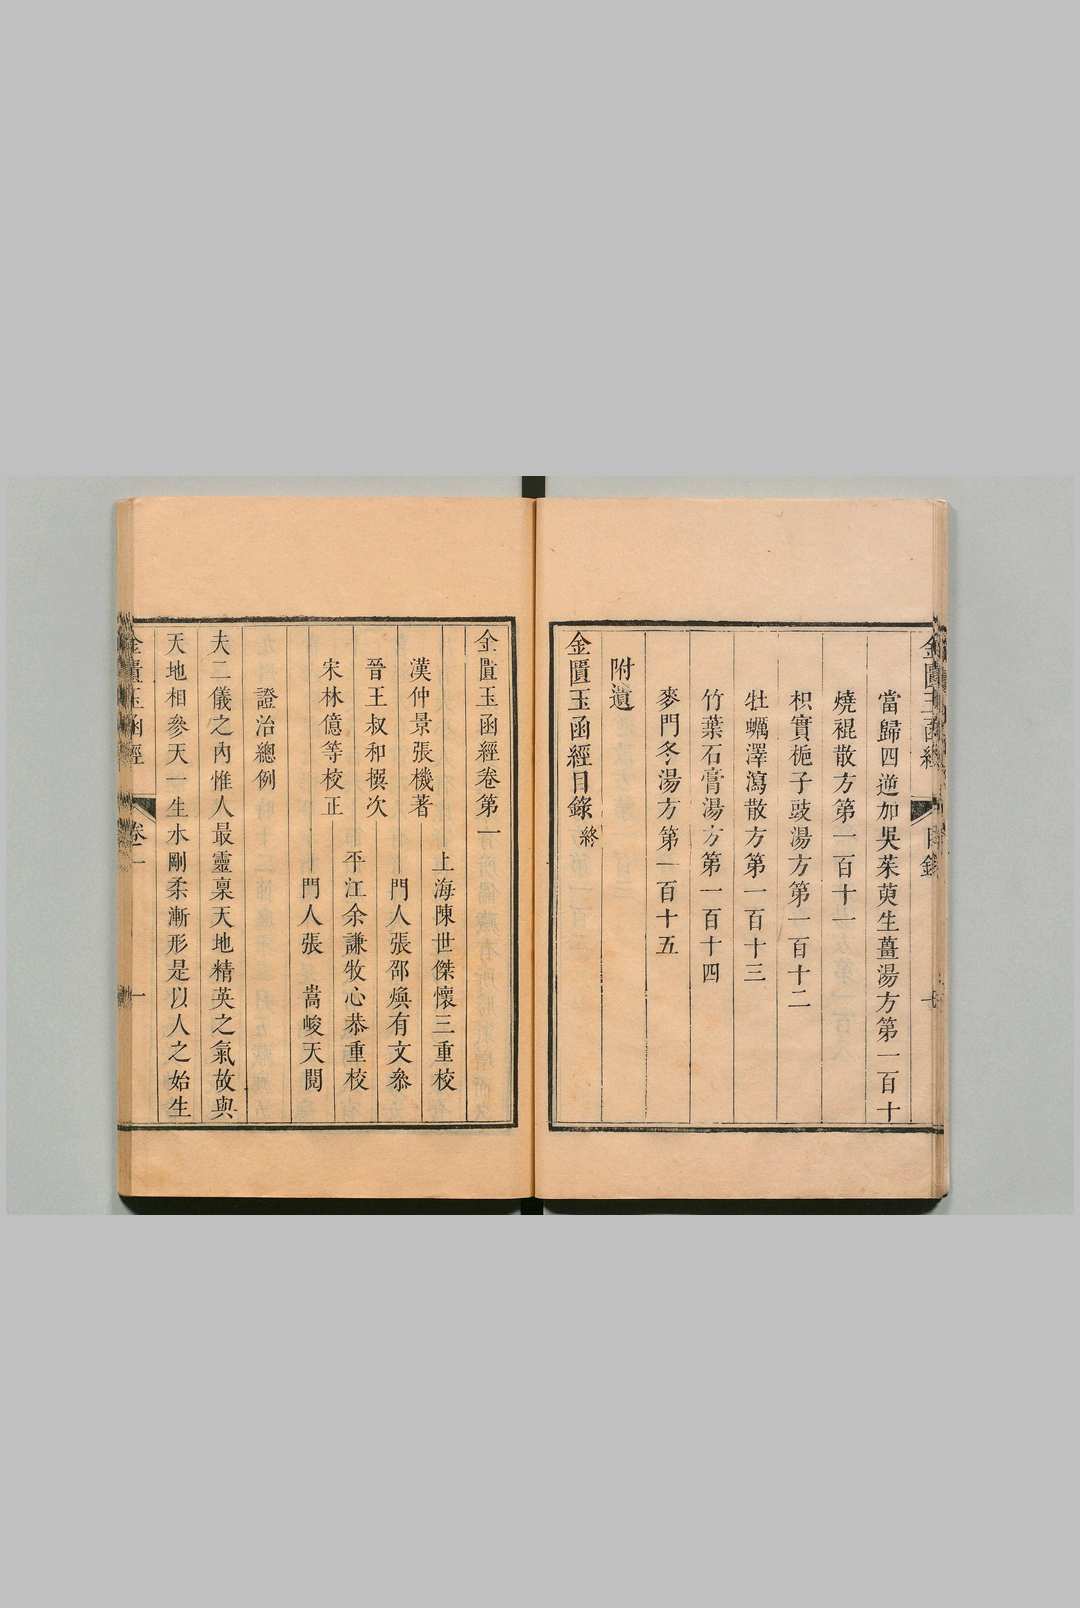 當歸四逆加吳茱萸生薑湯方第一百十
燒裩散方第一百十一
枳實梔子豉湯方第一百十二
牡蠣澤瀉散方第一百十三
竹葉石膏湯方第一百十四
麥門冬湯方第一百十五
附遺
金匱玉函經目錄終
金匱玉函經卷第一
漢仲景張機著
上海陳世傑懷三重校
晉王叔和撰次
門人張邵煥有文叅
宋林億等校正
平江余謙牧心恭重校
門人張嵩峻天閱
證治總例
夫二儀之內惟人最靈稟天地精英之氣故與
天地相參天一生水剛柔漸形是以人之始生
金匱玉函經 卷一 一